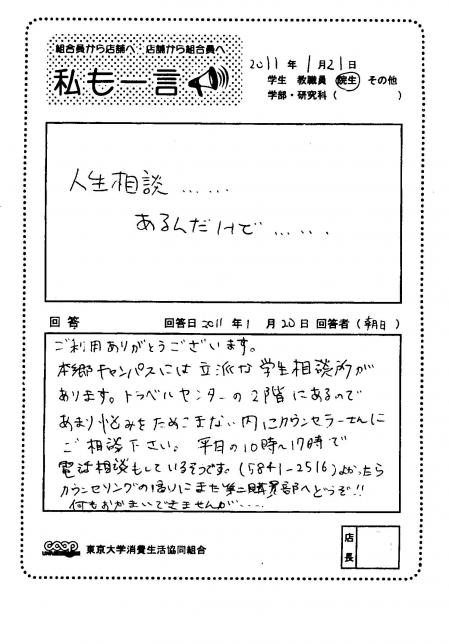 組合員から店舗へ 店舗から組合員へ
私も一言
2011年1月21日
学生 教職員 院生 その他
学部・研究科( )
人生相談……
あるんだけど……
回答 回答日 2011年1月20日 回答者(朝日)
ご利用ありがとうございます。
本郷キャンパスには立派な学生相談所が
あります。トラベルセンターの2階にあるので
あまり悩みをためこまない内にカウンセラーさんに
ご相談下さい。平日の10時〜17時で
電話相談もしているそうです。(5841-2516)よかったら
カウンセリングの帰りにまた第二購買部へどうぞ!!
何もおかまいできませんが….
coop 東京大学消費生活協同組合
店長